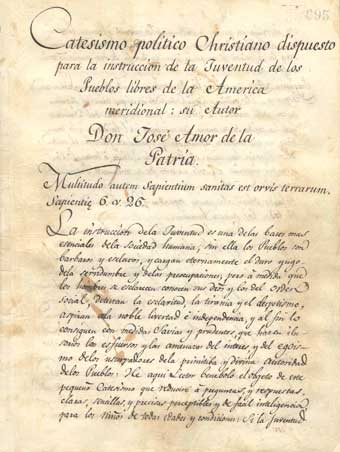 695
Catesismo político Christiano dispuesto
para la instruccion de la Juventud de los
Pueblos libres de la America
meridional: su Autor
Don José Amor de la
Patria.
Multitudo autem Sapientium sanitas est orvis terrarum.
Sapientiæ 6. v. 26.
La instruccion dela Juventud es una delas bases mas
esenciales dela Sociedad humana, sin ella los Pueblos son
barbaros y esclavos, y cargan eternamente el duro yugo
dela servidumbre y delas preocupaciones, pero a medida que
los hombres se esclarecen conocen sus dros y los del orden
social, detestan la esclavitud, la tirania y el despotismo,
aspiran ala noble livertad e independencia, y al fin lo
consiguen con medidas Savias y prudentes que hacen ilu-
sorios los esfuersos y las amenasas del interes, y del egois-
mo delos usurpadores dela primitiba y divina autoridad
delos Pueblos. He aqui Lector benebolo el objeto de este
pequeño Catesismo que reducire a preguntas, y respuestas
claras, sencillas, y precisas perceptibles y de facil inteligencia
para los niños de todas edades y condiciones. Si la Juventud